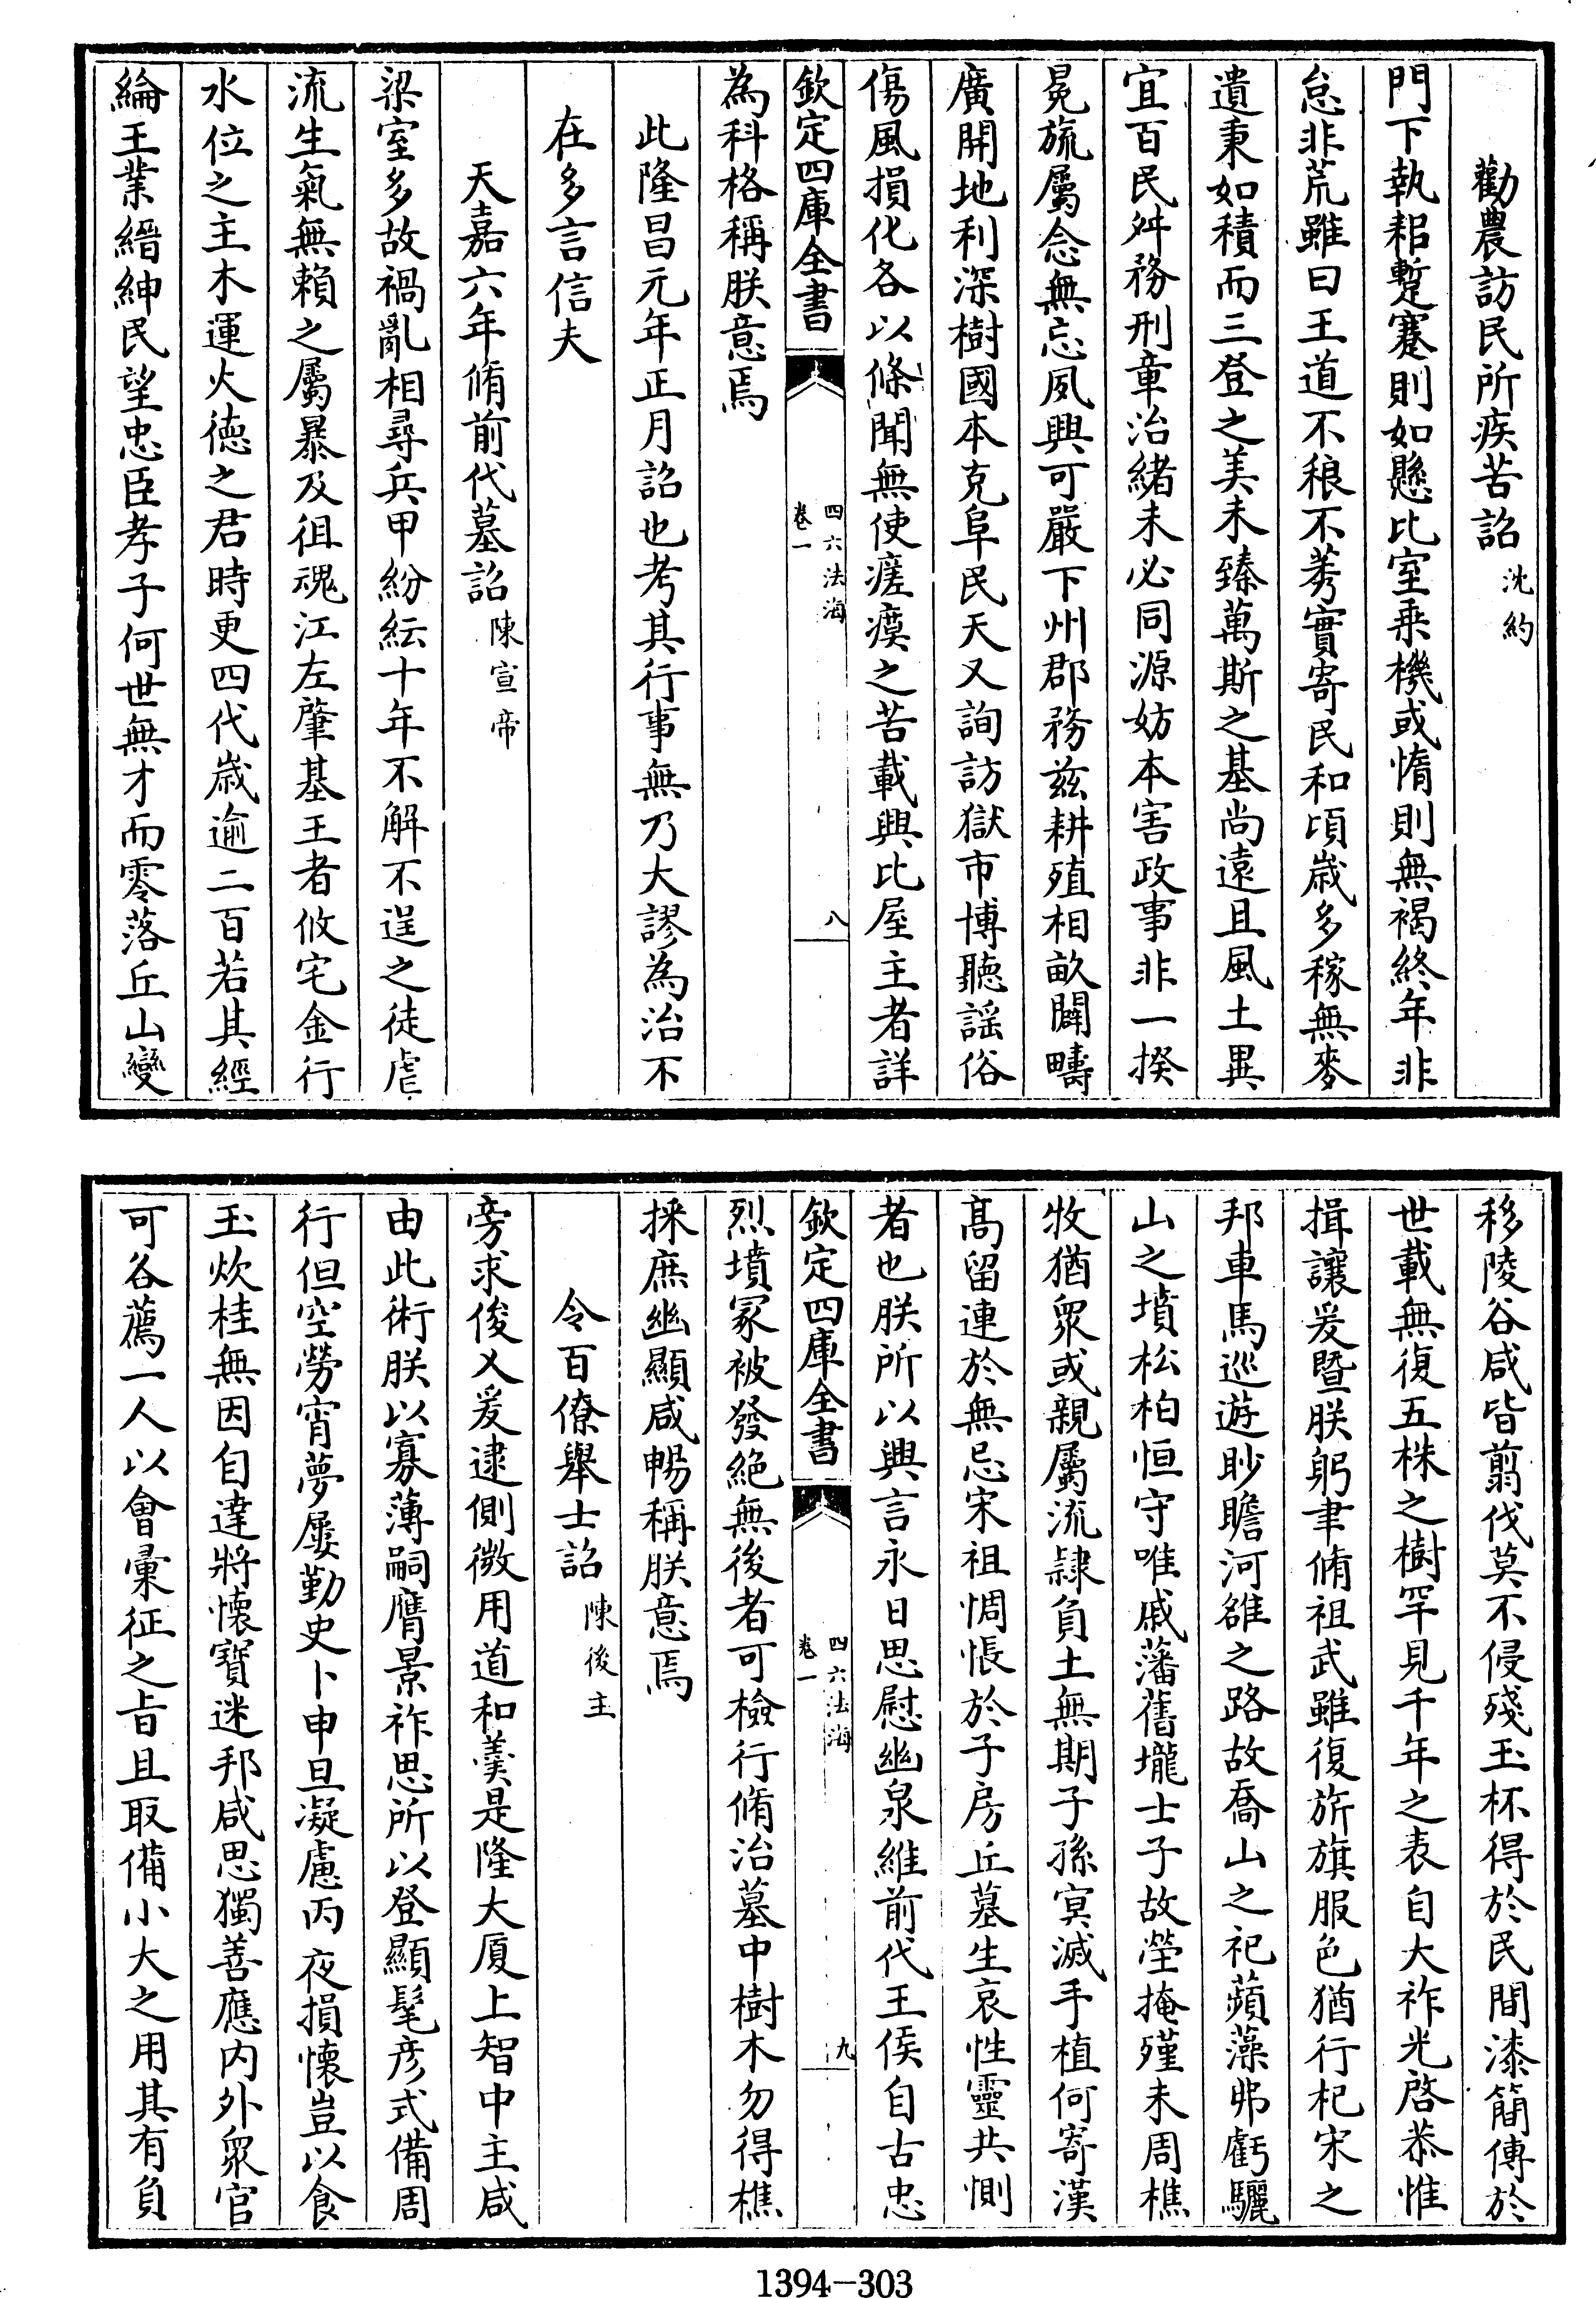 勸農訪民所疾苦詔 沈約
門下執耜蹔蹇則如懸比室乗機或惰則無褐終年非
怠非荒雖曰王道不稂不莠實寄民和頃歲多稼無麥
遺秉如積而三登之美未臻萬斯之基尚遠且風土異
宜百民舛務刑章治緒未必同源妨本害政事非一揆
冕旒屬念無忘夙興可嚴下州郡務兹耕殖相畝闢疇
廣開地利深樹國本克阜民天又詢訪獄市博聽謡俗
傷風損化各以條聞無使瘥瘼之苦載興比屋主者詳
欽定四庫全書 四六法海 卷一 八
為科格稱朕意焉
此隆昌元年正月詔也考其行事無乃大謬為治不
在多言信夫
天嘉六年脩前代墓詔 陳宣帝
梁室多故禍亂相尋兵甲紛紜十年不解不逞之徒虐
流生氣無賴之屬暴及徂魂江左肇基王者攸宅金行
水位之主木運火德之君時更四代歲逾二百若其經
綸王業縉紳民望忠臣孝子何世無才而零落丘山變
移陵谷咸皆翦伐莫不侵殘玉杯得於民間漆簡傳於
世載無復五株之樹罕見千年之表自大祚光啓恭惟
揖讓爰暨朕躬聿脩祖武雖復旂旗服色猶行杞宋之
邦車馬巡遊眇瞻河雒之路故喬山之祀蘋藻弗虧驪
山之墳松柏恒守唯戚藩舊壠士子故塋掩殣未周樵
牧猶眾或親屬流隸負土無期子孫冥滅手植何寄漢
高留連於無忌宋祖惆悵於子房丘墓生哀性靈共惻
者也朕所以興言永日思慰幽泉維前代王侯自古忠
欽定四庫全書 四六法海 卷一 九
烈墳冢被發絶無後者可檢行脩治墓中樹木勿得樵
採庶幽顯咸暢稱朕意焉
令百僚舉士詔 陳後主
旁求俊乂爰逮側微用道和羹是隆大厦上智中主咸
由此術朕以寡薄嗣膺景祚思所以登顯髦彦式備周
行但空勞宵夢屢勤史卜申旦凝慮丙夜損懷豈以食
玉炊桂無因自達將懷寶迷邦咸思獨善應内外眾官
可各薦一人以會彙征之旨且取備小大之用其有負
1394-303